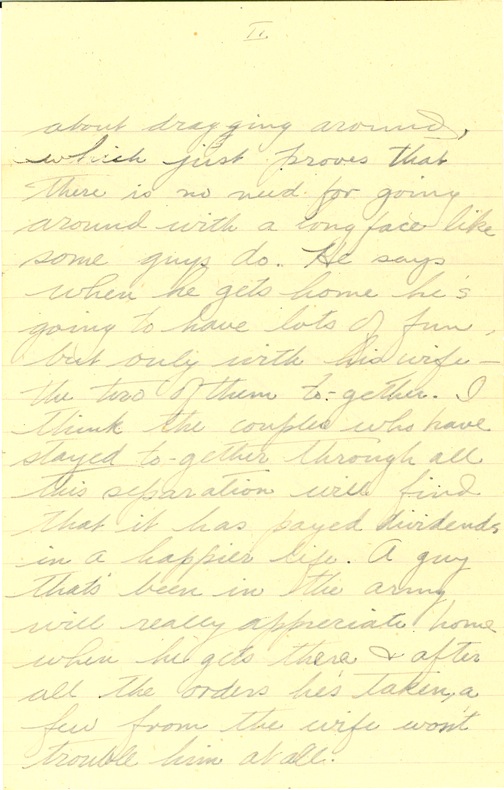 II.
about dragging around,
which just proves that
there is no need for going
around with a long face like
some guys do. He says
when he gets home he's
going to have lots of fun,
but only with his wife —
the two of them to-gether. I
think the couples who have
stayed to-gether through all
this separation will find
that it has payed dividends
in a happier life. A guy
thats been in the army
will really appreciate home
when he gets there & after
all the orders he's taken, a
few from the wife won't
trouble him at all.